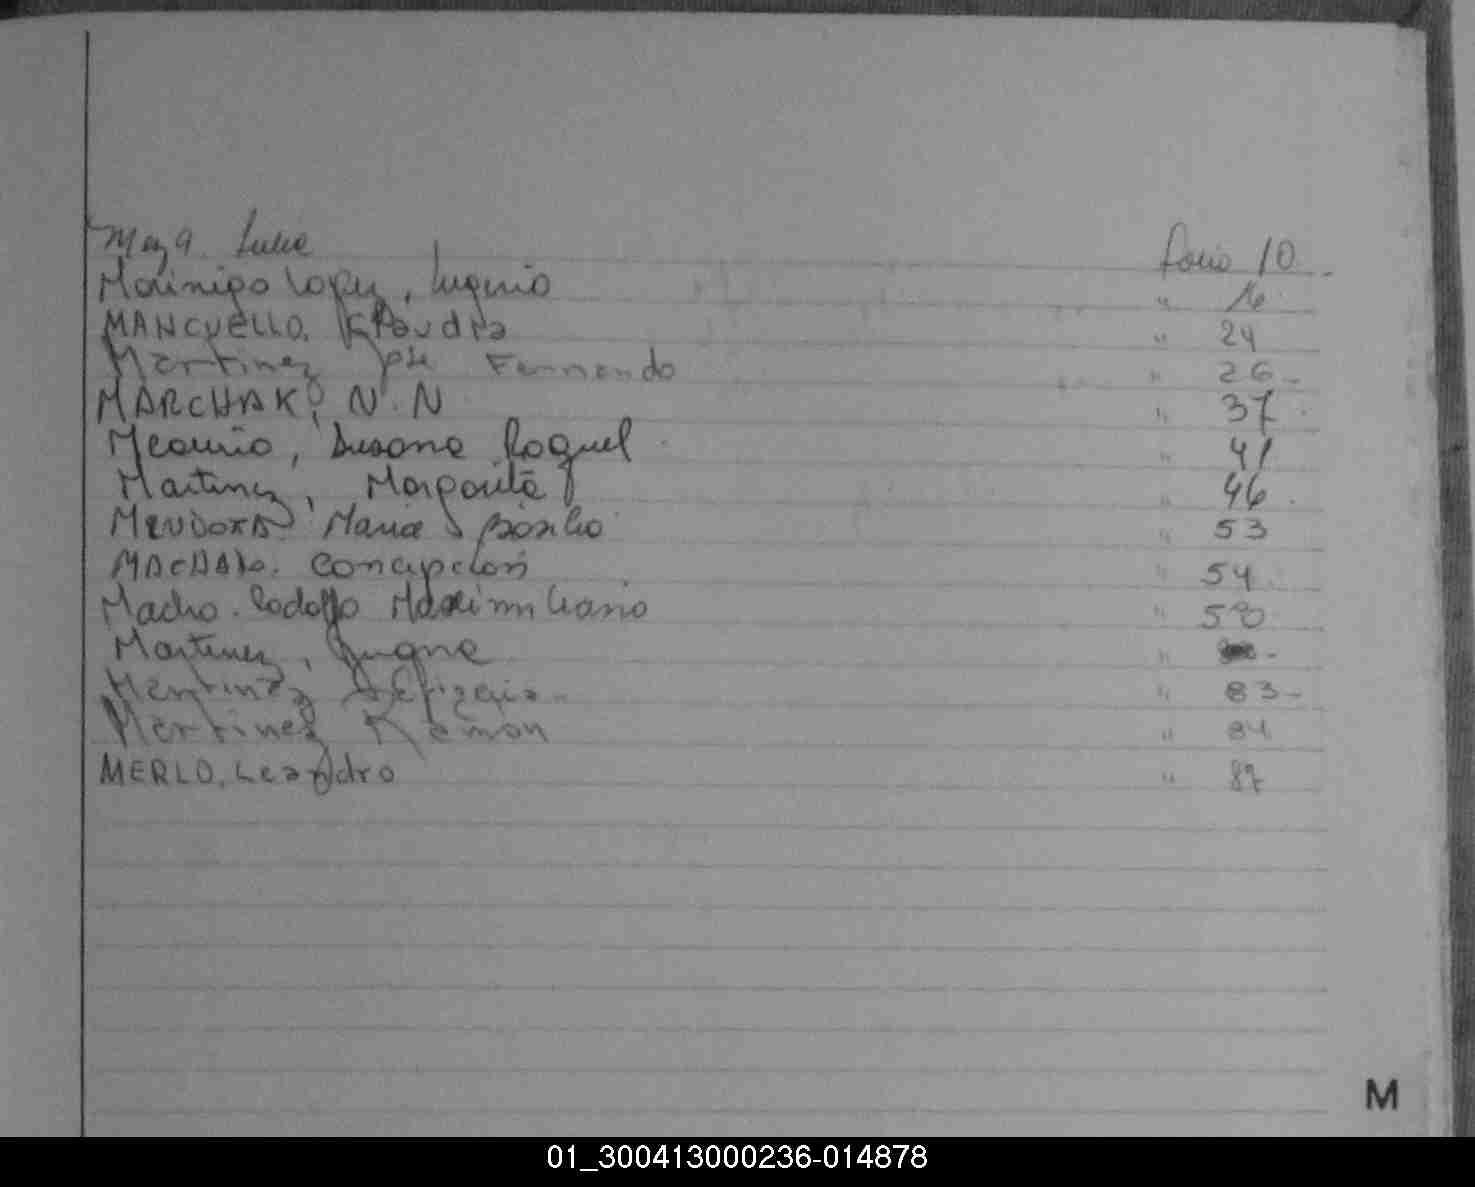 Meza. Lucia folio 10
Morinigo Lopez, Eugenio " 16
MANCUELLO. Klaudia " 24
Martinez José Fernando " 26
MARCHAK, N.N " 37
Susana Raquel " 41
Martinez, Margarita " 46
MENDOZA Maria Basilio " 53
Concepción " 54
Macho. Rodolfo Maximiliano " 58
Martinez, "
Martinez " 83
Martinez Ramon " 84
MERLO, Leandro " 87
M
01_300413000236-014878